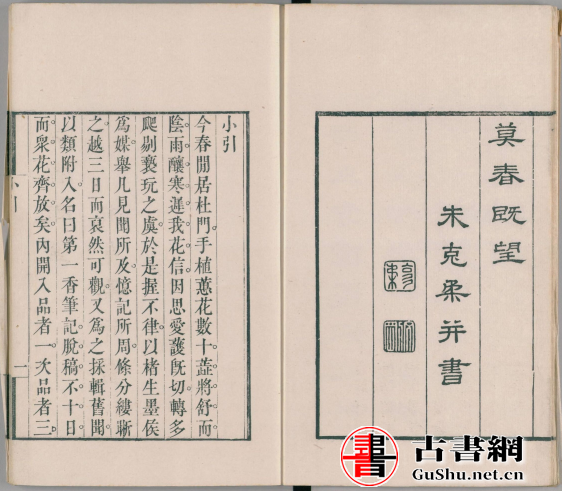 莫春既望
朱克柔并書
小引
今春閒居杜門手植蕙花數十葢將舒而
陰雨釀寒遲我花信因思愛護既切轉多
爬剔褻玩之虞於是握不律以楮生墨矦
爲媒舉凡見聞所及憶記所周條分縷晰
之越三日而裒然可觀又爲之採輯舊聞
以類附入名曰第一香筆記脫稿不十日
而衆花齊放矣內開入品者一次品者三
小引
一
古書網
GuShu.net.cn